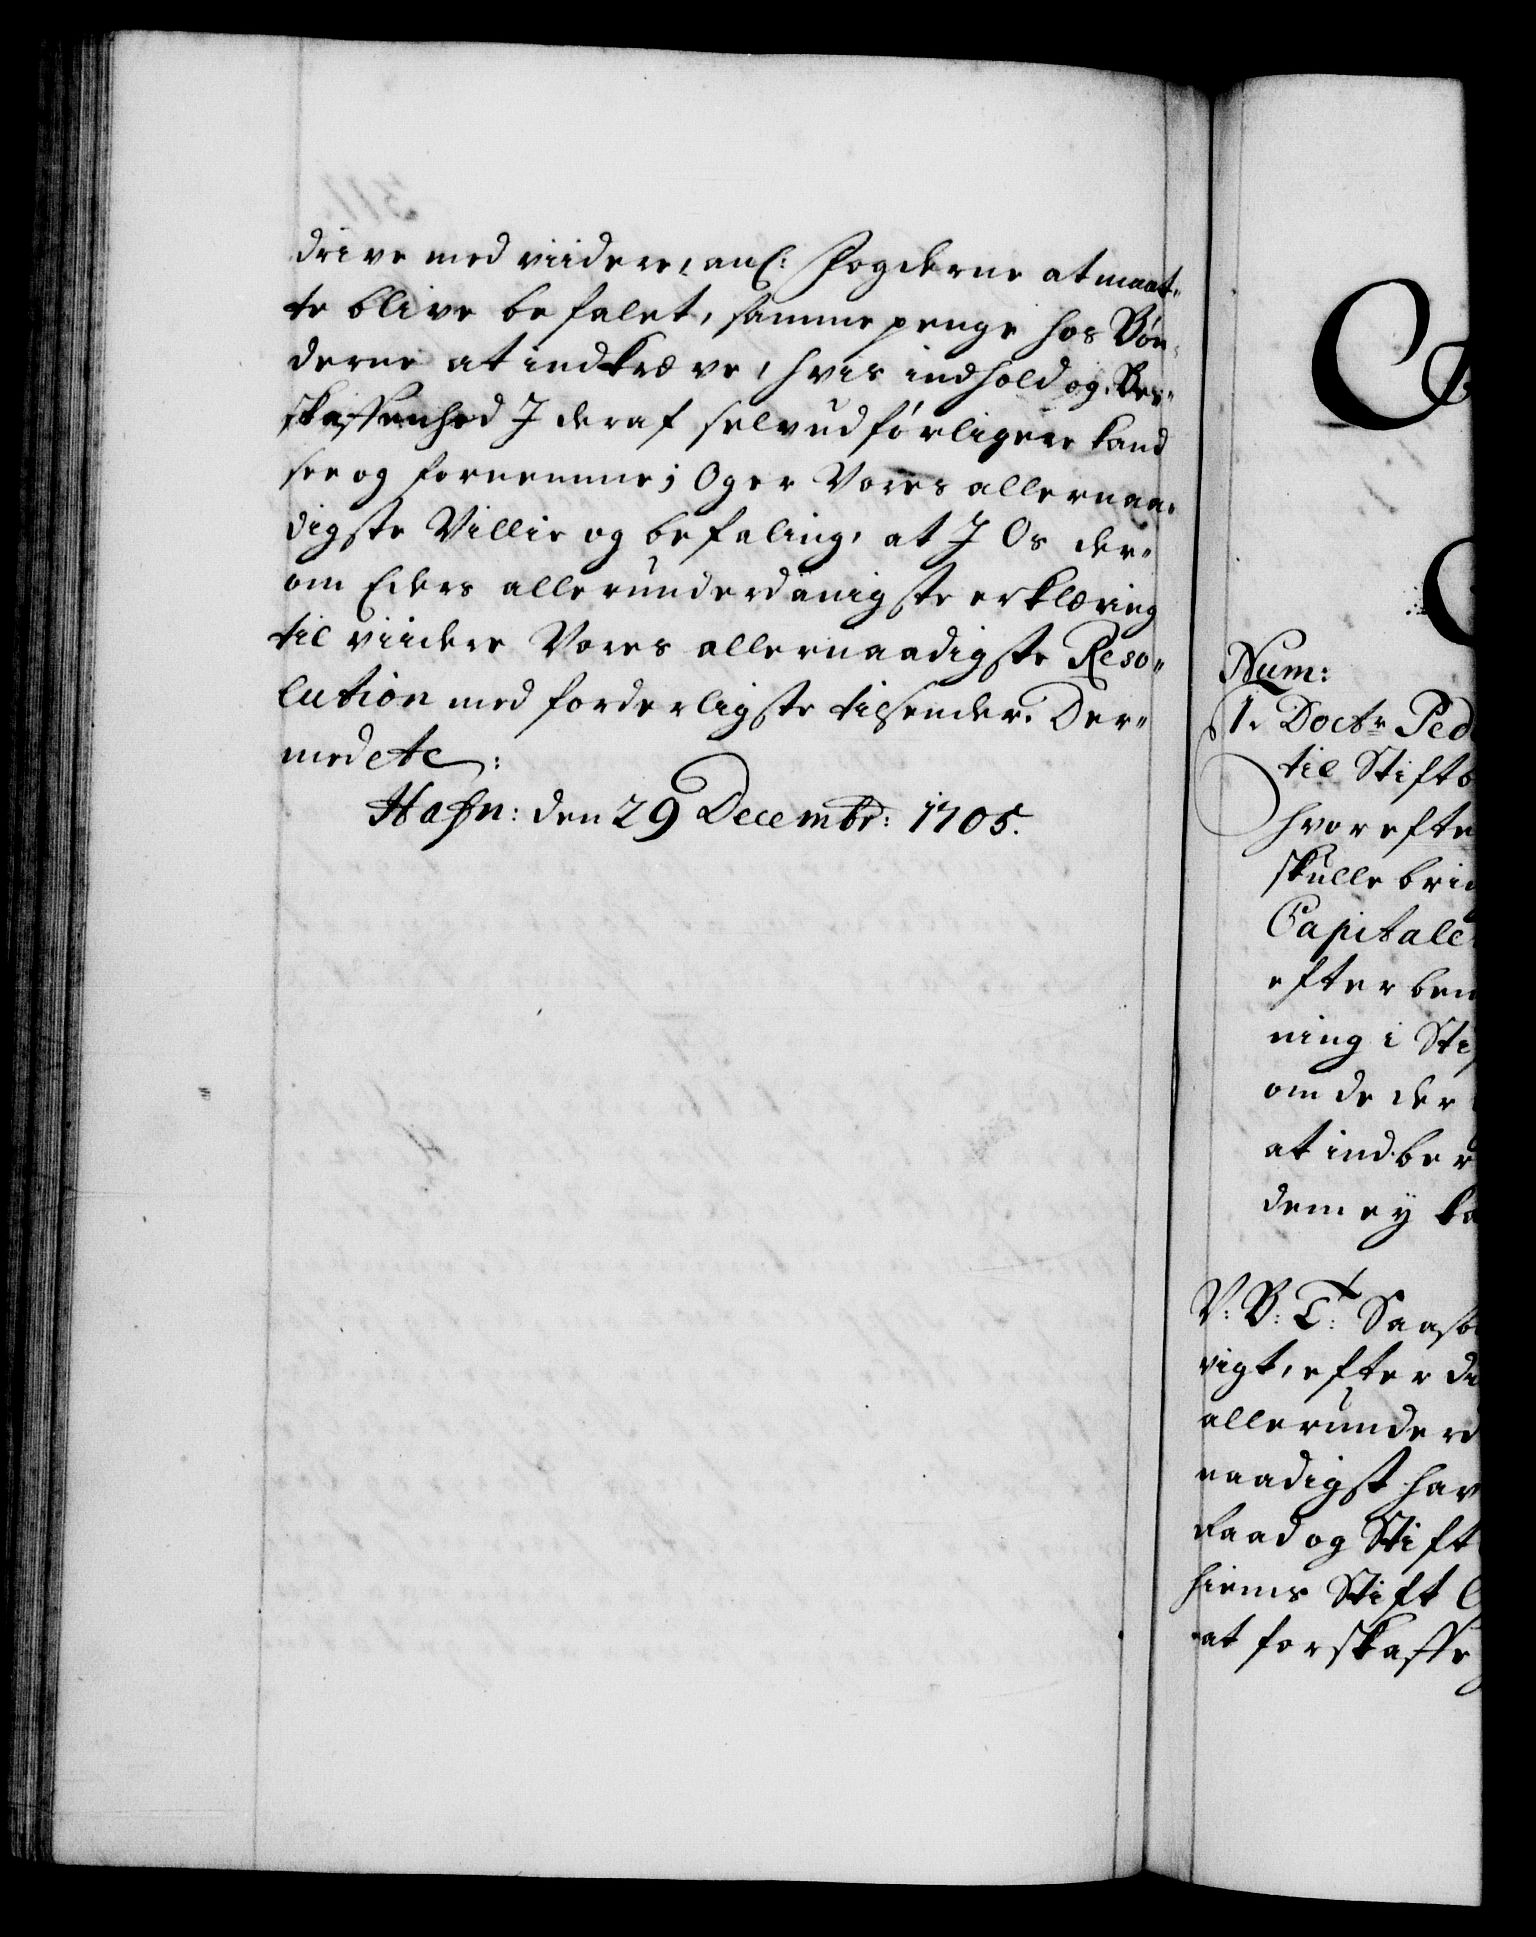 drive med viidere, anl: Fogderne at maat„
te blive befalet, samme penge hos Bøn„
derne at indkræve, hvis indhold og Be„
skaffenhed J deraf selv udførligere kand
see og fornemme; Og er Vores allernaa„
digste Villie og befaling, at J Os der„
om Eders allerunderdanigste erklæring
til viidere Vores allernaadigste Reso„
lution med forderligste tilsender. Der„
med etc:
Hafn: den 29 Decembr: 1705.
Num:
1. Doctr Ped
til Stiftb
hvorefte
skulle bri
Capitale
efter ben
ning i Sti
om de der
at indber
dem ey ka
V: B: T: Saasom
vigt, efter di
allerunderd
naadigst hav
Raad og Stift
hiems Stift
at forskaffe